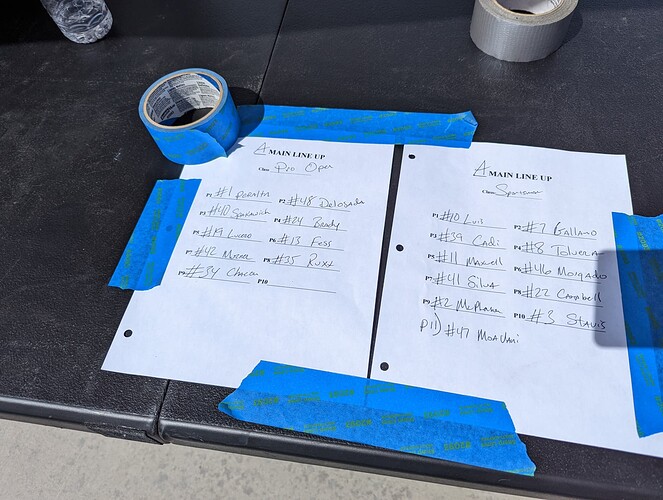 A MAIN LINE UP
Class: Pro Open
P1 #1 Peralta P2 #48 DeLosada
P3 #40 P4 #24 Brady
P5 #19 Lucero P6 #13 Fess
P7 #42 P8 #35 Ruxt
P9 #34 Chacon P10
A MAIN LINE UP
Class: Sportsman
P1 #10 Luis P2 #7 Galland
P3 #39 P4 #8
P5 #11 Maxwell P6 #46 Morgado
P7 #41 Silva P8 #22 Campbell
P9 #2 P10 #3 Stavis
P11) #47